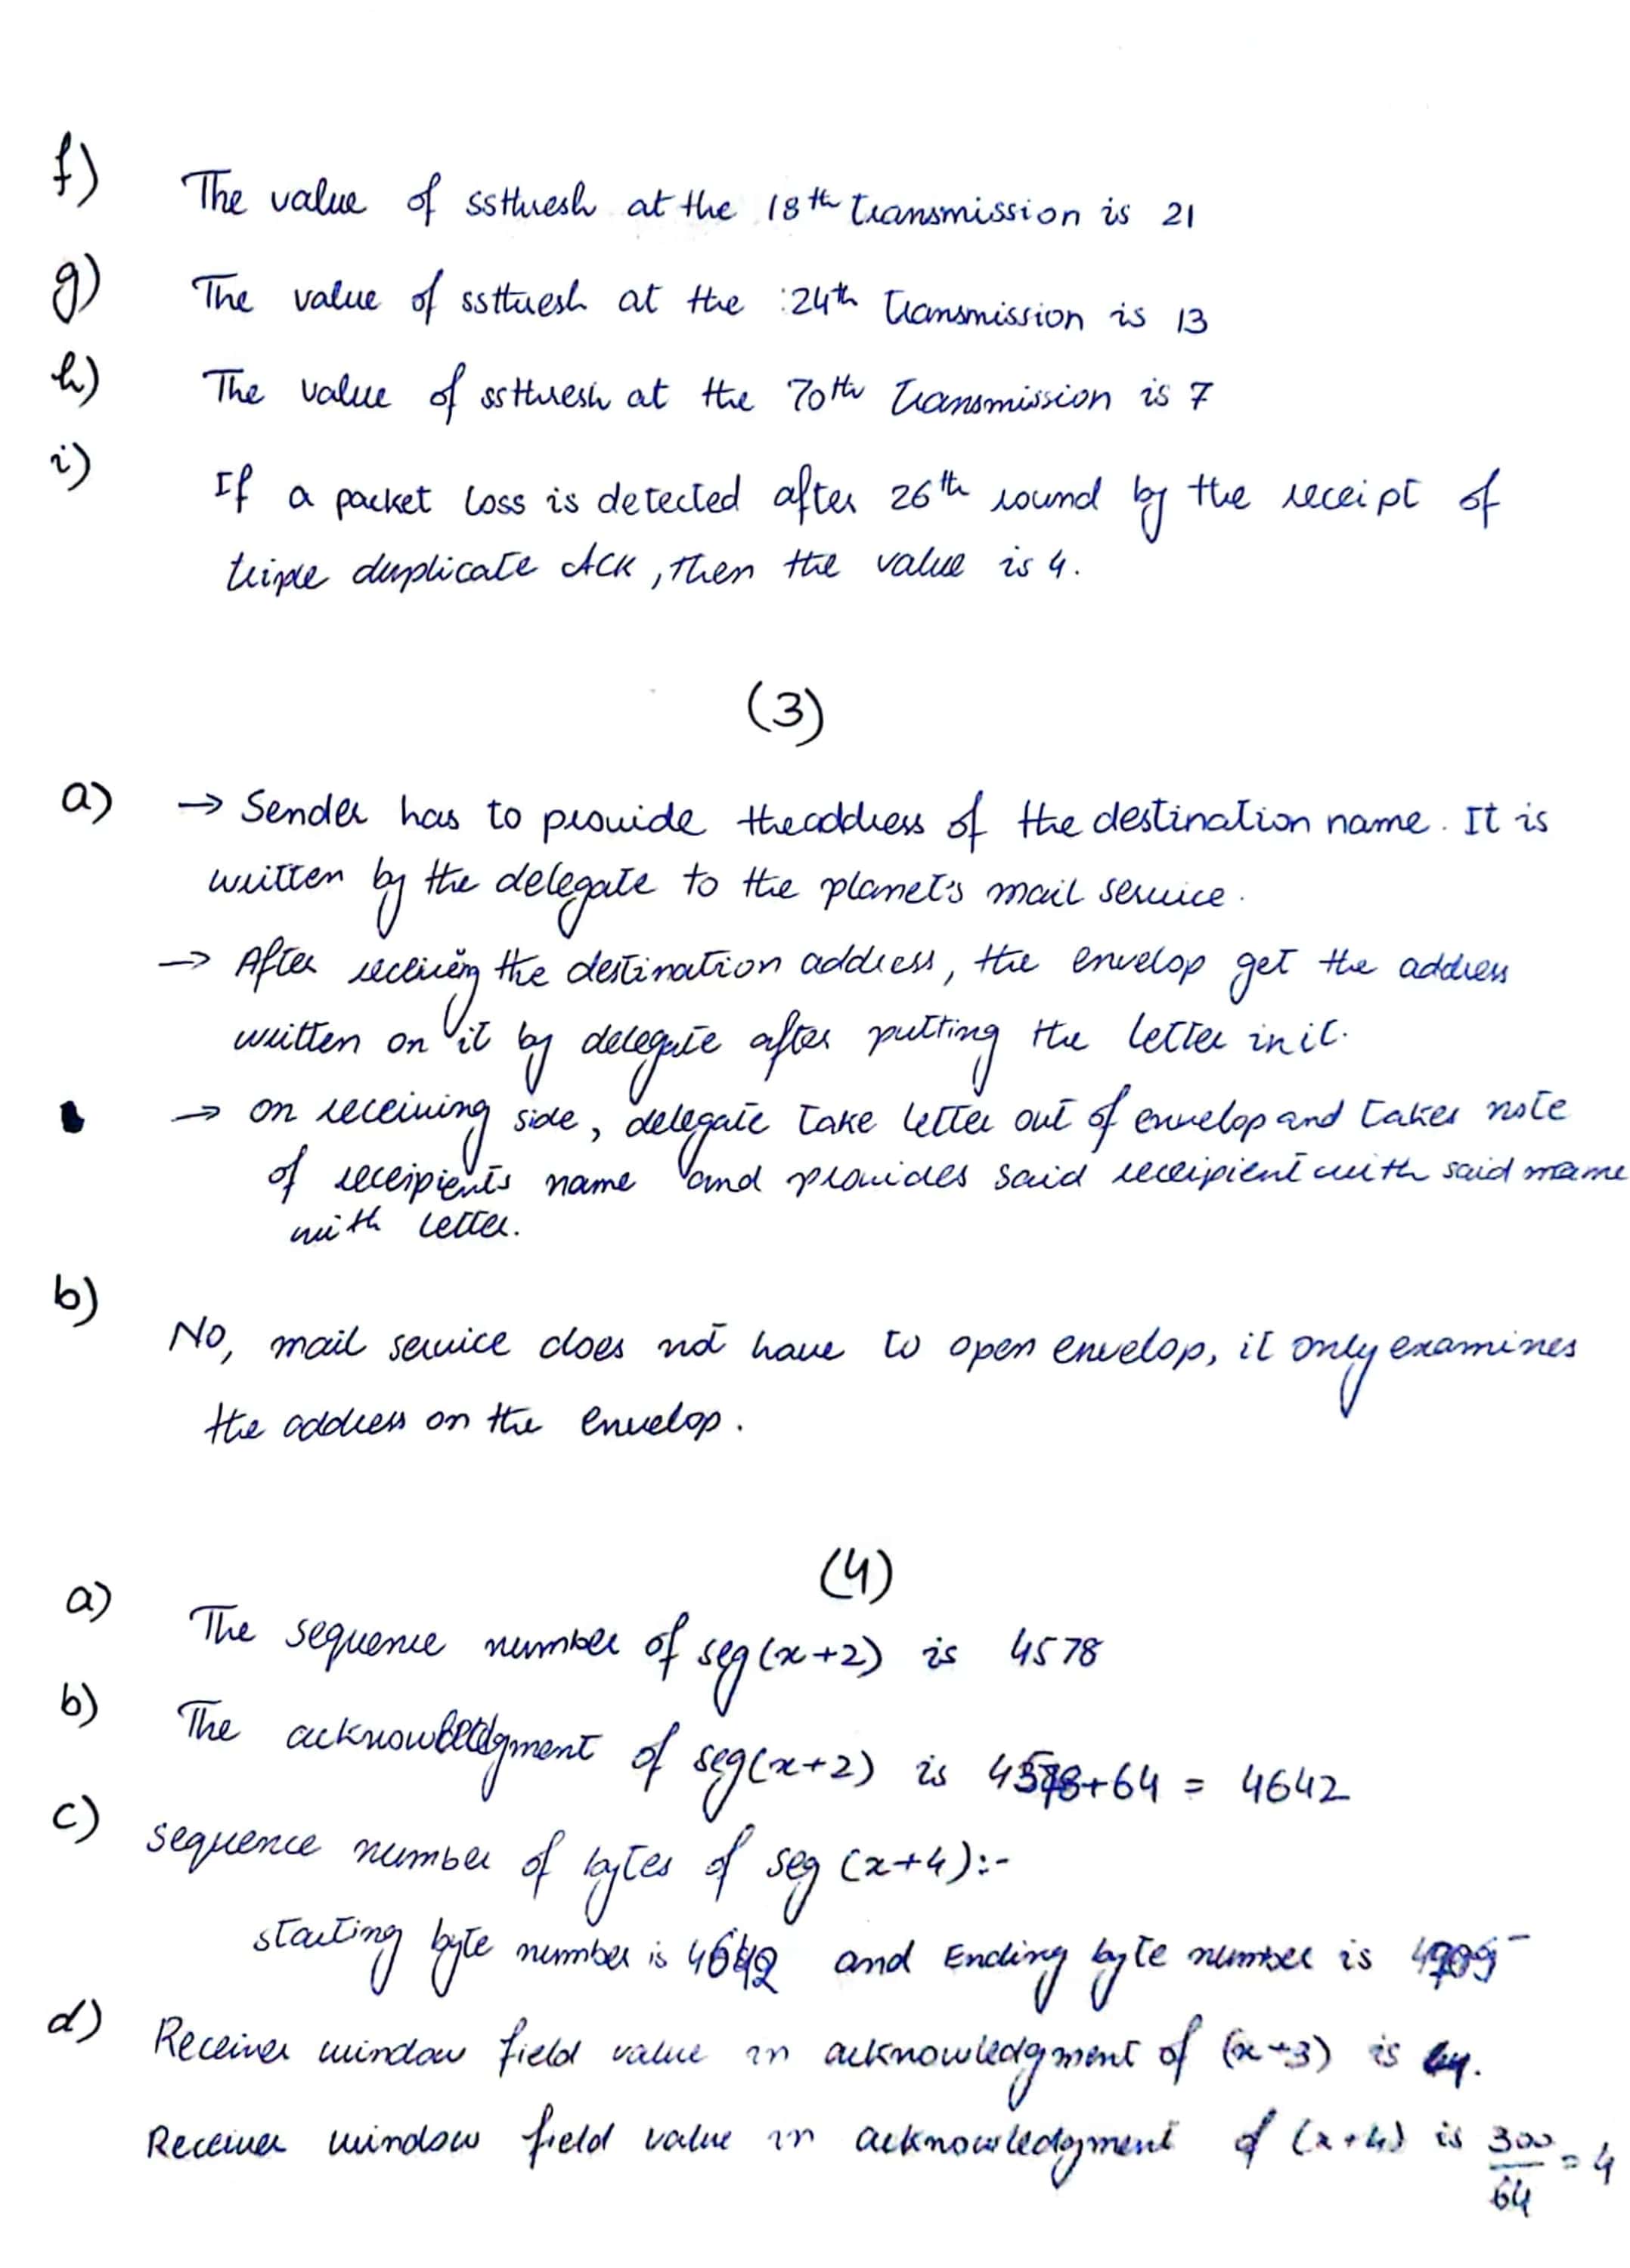 f) The value of ssthresh at the 18th transmission is 21
g) The value of ssthresh at the :24th transmission is 13
h) The value of ssthresh at the 70th transmission is 7
i) If a packet loss is detected after 26th round by the receipt of
triple duplicate ACK, then the value is 4.
(3)
a) → Sender has to provide the address of the destination name. It is
written by the delegate to the planet's mail service.
→ After receiving the destination address, the envelop get the address
written on it by delegate after putting the letter in it.
→ on receiving side, delegate take letter out of envelop and takes note
of receipient's name and provides said receipient with said name
with letter.
b) No, mail service does not have to open envelop, it only examines
the address on the envelop.
(4)
a) The sequence number of seg(x+2) is 4578
b) The acknowledgment of seg(x+2) is 4578+64 = 4642
c) sequence number of bytes of seg (x+4):-
starting byte number is 4642 and Ending byte number is
d) Receiver window field value in acknowledgment of (x+3) is 64.
Receiver window field value in acknowledgment of (x+4) is 300/64 = 4